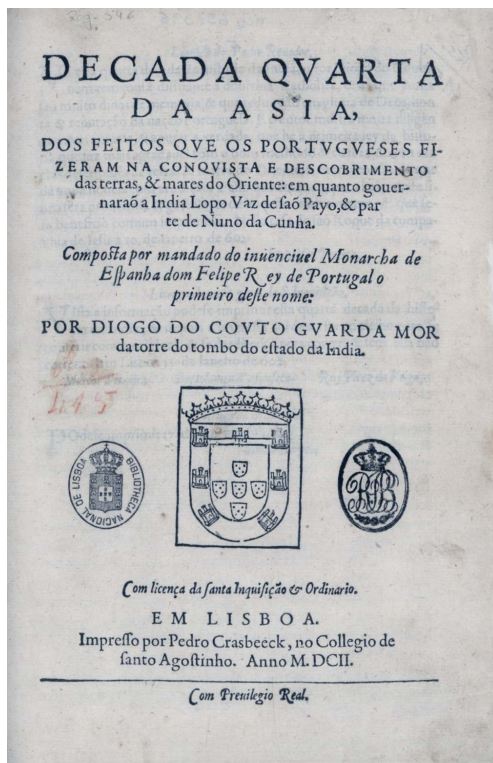 DECADA QVARTA
DA ASIA,
DOS FEITOS QVE OS PORTVGVESES FI-
ZERAM NA CONQVISTA E DESCOBRIMENTO
das terras, & mares do Oriente: em quanto gouer-
naraõ a India Lopo Vaz de saõ Payo, & par
te de Nuno da Cunha.
Composta por mandado do inuenciuel Monarcha de
Espanha dom Felipe Rey de Portugal o
primeiro deste nome:
POR DIOGO DO COVTO GVARDA MOR
da torre do tombo do estado da India.
BIBLIOTHECA NACIONAL DE LISBOA
Com licença da santa Inquisição & Ordinario.
EM LISBOA.
Impresso por Pedro Crasbeeck, no Collegio de
santo Agostinho. Anno M. DCII.
Com Preuilegio Real.